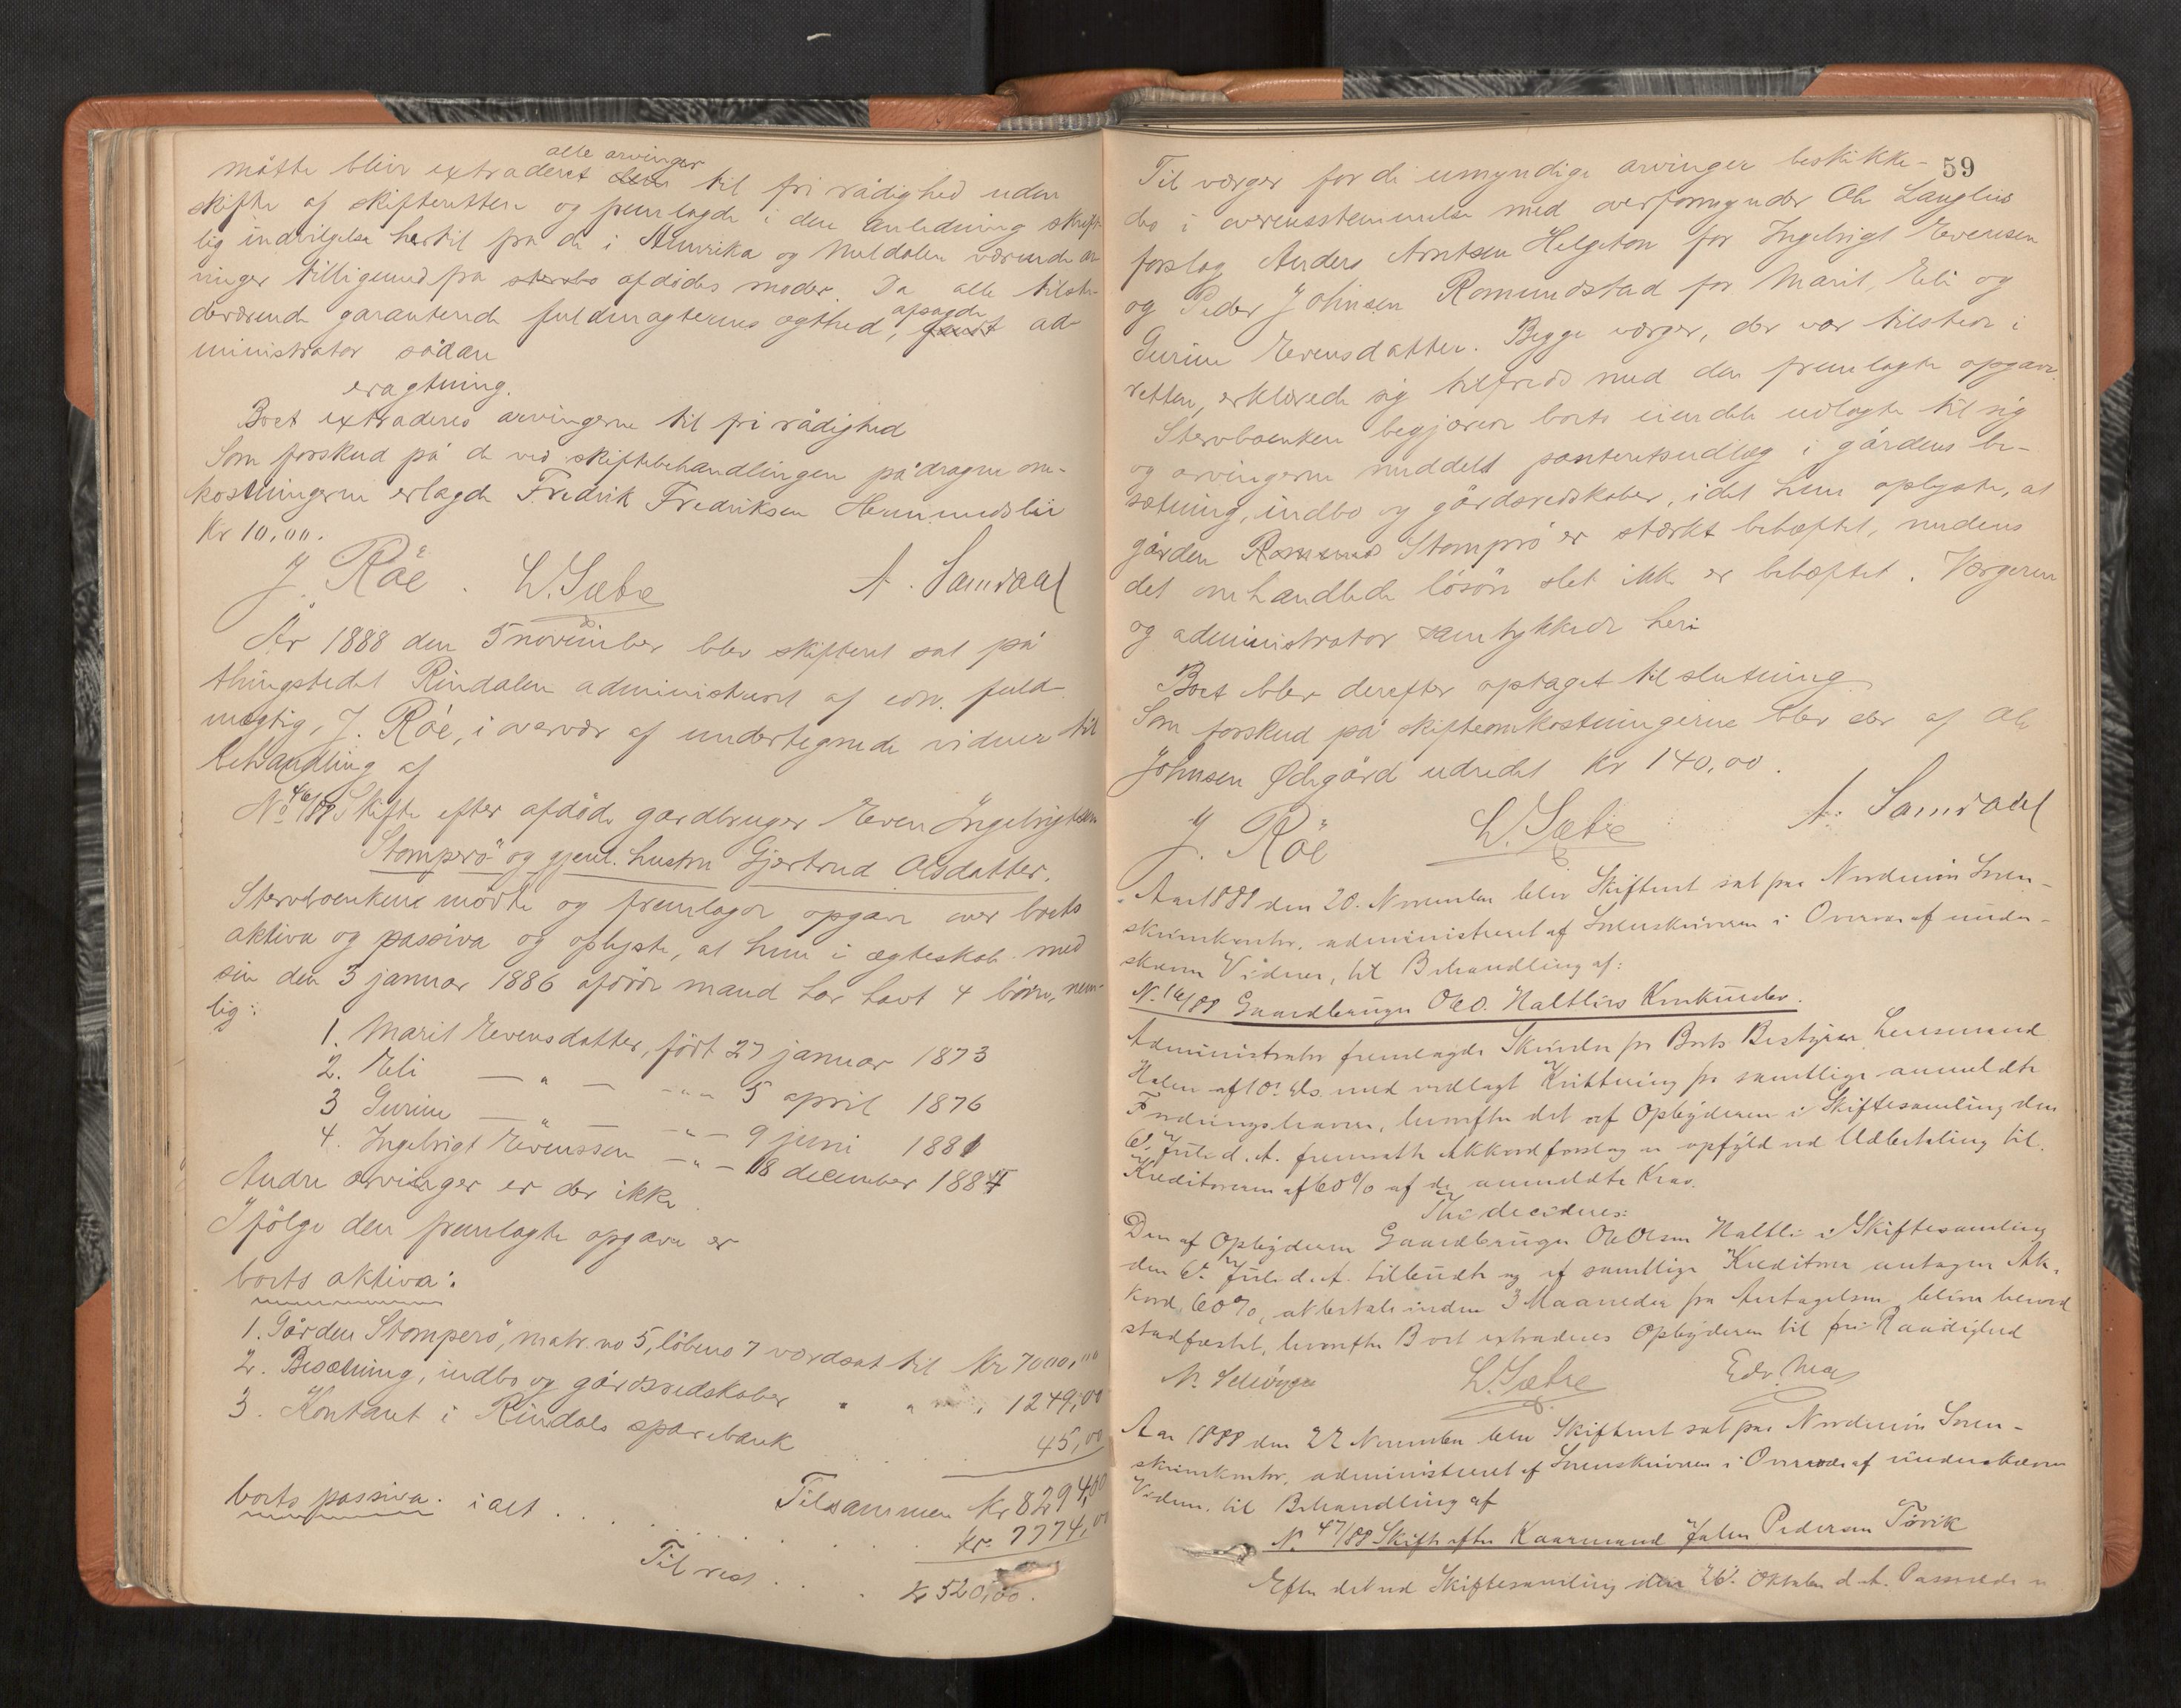 måtte bliv extraderet alle arvinger til fri rådighed uden
skifte af skifteretten og fremlagde i den anledning skrift-
lig indvilgelse hertil fra de i Amerika og Meldalen værende ar-
vinger tilligemed fra sterbo afdødes moder. Da alle tilste-
deværende garanterede fuldmagternes ægthed, afsagde ad-
ministrator sådan
eragtning.
Boet extraderes arvingerne til fri rådighed
Som forskud på de ved skiftebehandlingen pådragne om-
kostningerne erlagde Fredrik Fredriksen
Kr 10,00.
J. Röe. L. Sæbe A. Samdaal
År 1888 den 5 november blev skifteret sat på
thingstedet Rindalen administreret af edsv. fuld-
mægtig, J. Röe, i overvær af undertegnede vidner til
behandling af
No 46/88 Skifte efter afdøde gardbruger Even Ingebrigtsen
Stomperö og gjenl. hustru Gjertrud Olsdatter.
Stervboenken mödte og fremlagde opgave over boets
aktiva og passiva og oplyste, at hun i ægteskab med
sin den 3 januar 1886 afdöde mand har havt 4 börn, nem-
lig:
1. Marit Evensdatter, född 27 januar 1873
2. Eli — " — — " — 5 april 1876
3 Gurine — " — — " — 9 juni 1881
4. Ingebrigt Evenssen — " — 18 december 1884
Andre arvinger er der ikke
Ifölge den fremlagte opgave er
boets aktiva:
1. Gården Stomperö, matr. no 5, löbeno 7 værdsat til Kr 7000,00
2. Besætning, indbo og gårdsredskaber " " 1249,00
3. Kontant i Rindals sparebank 45,00
Tilsammen Kr 8294,00
boets passiva. i alt . . . Kr. 7774,00
Til rest . . . Kr 520,00.
59
Til værger for de umyndige arvinger beskikke-
des i overensstemmelse med overformynder Ole Langlies
forslag Anders Arntsen Helgeton for Ingebrigt Evensen
og Peder Johnsen Romundstad for Marit, Eli og
Gurine Evensdatter. Begge værger, der var tilstede i
retten, erklærede sig tilfreds med den fremlagte opgave.
Stervboenken begjærer boets eiendele udlagte til sig
og arvingerne meddelt panteretsudlæg i gårdens be-
sætning, indbo og gårdsredskaber, idet hun oplyste, at
gården Romund Stomprö er stærkt behæftet, medens
det omhandlede lösöre slet ikke er behæftet. Værgerne
og administrator samtykkede heri
Boet blev derefter optaget til slutning
Som forskud på skifteomkostningerne blev der af Ole
Johnsen Ødegård udredet Kr 140,00.
J. Röe L. Sæbe A. Samdaal
Aar 1888 den 20. November blev Skifteret sat paa Nordmør Soren-
skriverkontor, administreret af Sorenskriveren i Overvær af under-
skrevne Vidner, til Behandling af:
N. 16/88 Gaardbruger Ole O. Haltlies Konkursbo.
Administrator fremlagde Skrivelse fra Boets Bestyrer Lensmand
Halen af 10. ds. med vedlagt Kvittering fra samtlige anmeldte
Fordringshavere, hvorefter det af Opbyderen i Skiftesamling den
6. Juli d. A. fremsatte Akkordforslag er opfyldt ved Udbetaling til
Kreditorerne af 60% af de anmeldte Krav.
Thi decideres:
Den af Opbyderen Gaardbruger Ole Olsen Haltli i Skiftesamling
den 6. Juli d. A. tilbudte og af samtlige Kreditorer antagne Ak-
kord, 60%, at betale inden 3 Maaneder fra Antagelsen, bliver herved
stadfæstet, hvorefter Boet extraderes Opbyderen til fri Raadighed
L. Sæbe
Aar 1888 den 22 November blev Skifteret sat paa Nordmør Soren-
skriverkontor, administreret af Sorenskriveren i Overvær af underskrevne
Vidner, til Behandling af
N. 47/88 Skifte efter Kaarmand John Pedersen Torvik
Efter det ved Skiftesamling den 26. Oktober d. A. Passerede